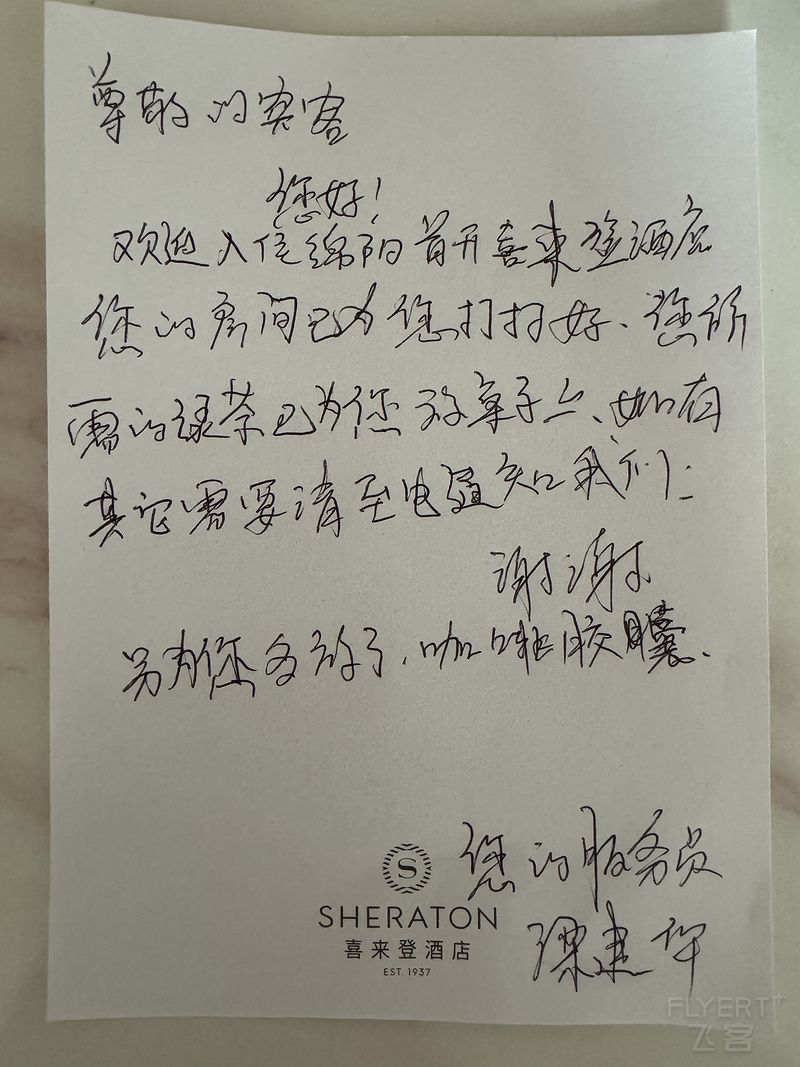 尊敬的宾客
您好!
欢迎入住绵阳首开喜来登酒店
您的房间已为您打扫好、您所
需的绿茶已为您放桌子上、如有
其它需要请至电通知我们:
谢谢
另为您多放了,咖啡胶囊.
您的服务员
梁建华
SHERATON
喜来登酒店
EST. 1937
FLYERT+
飞客